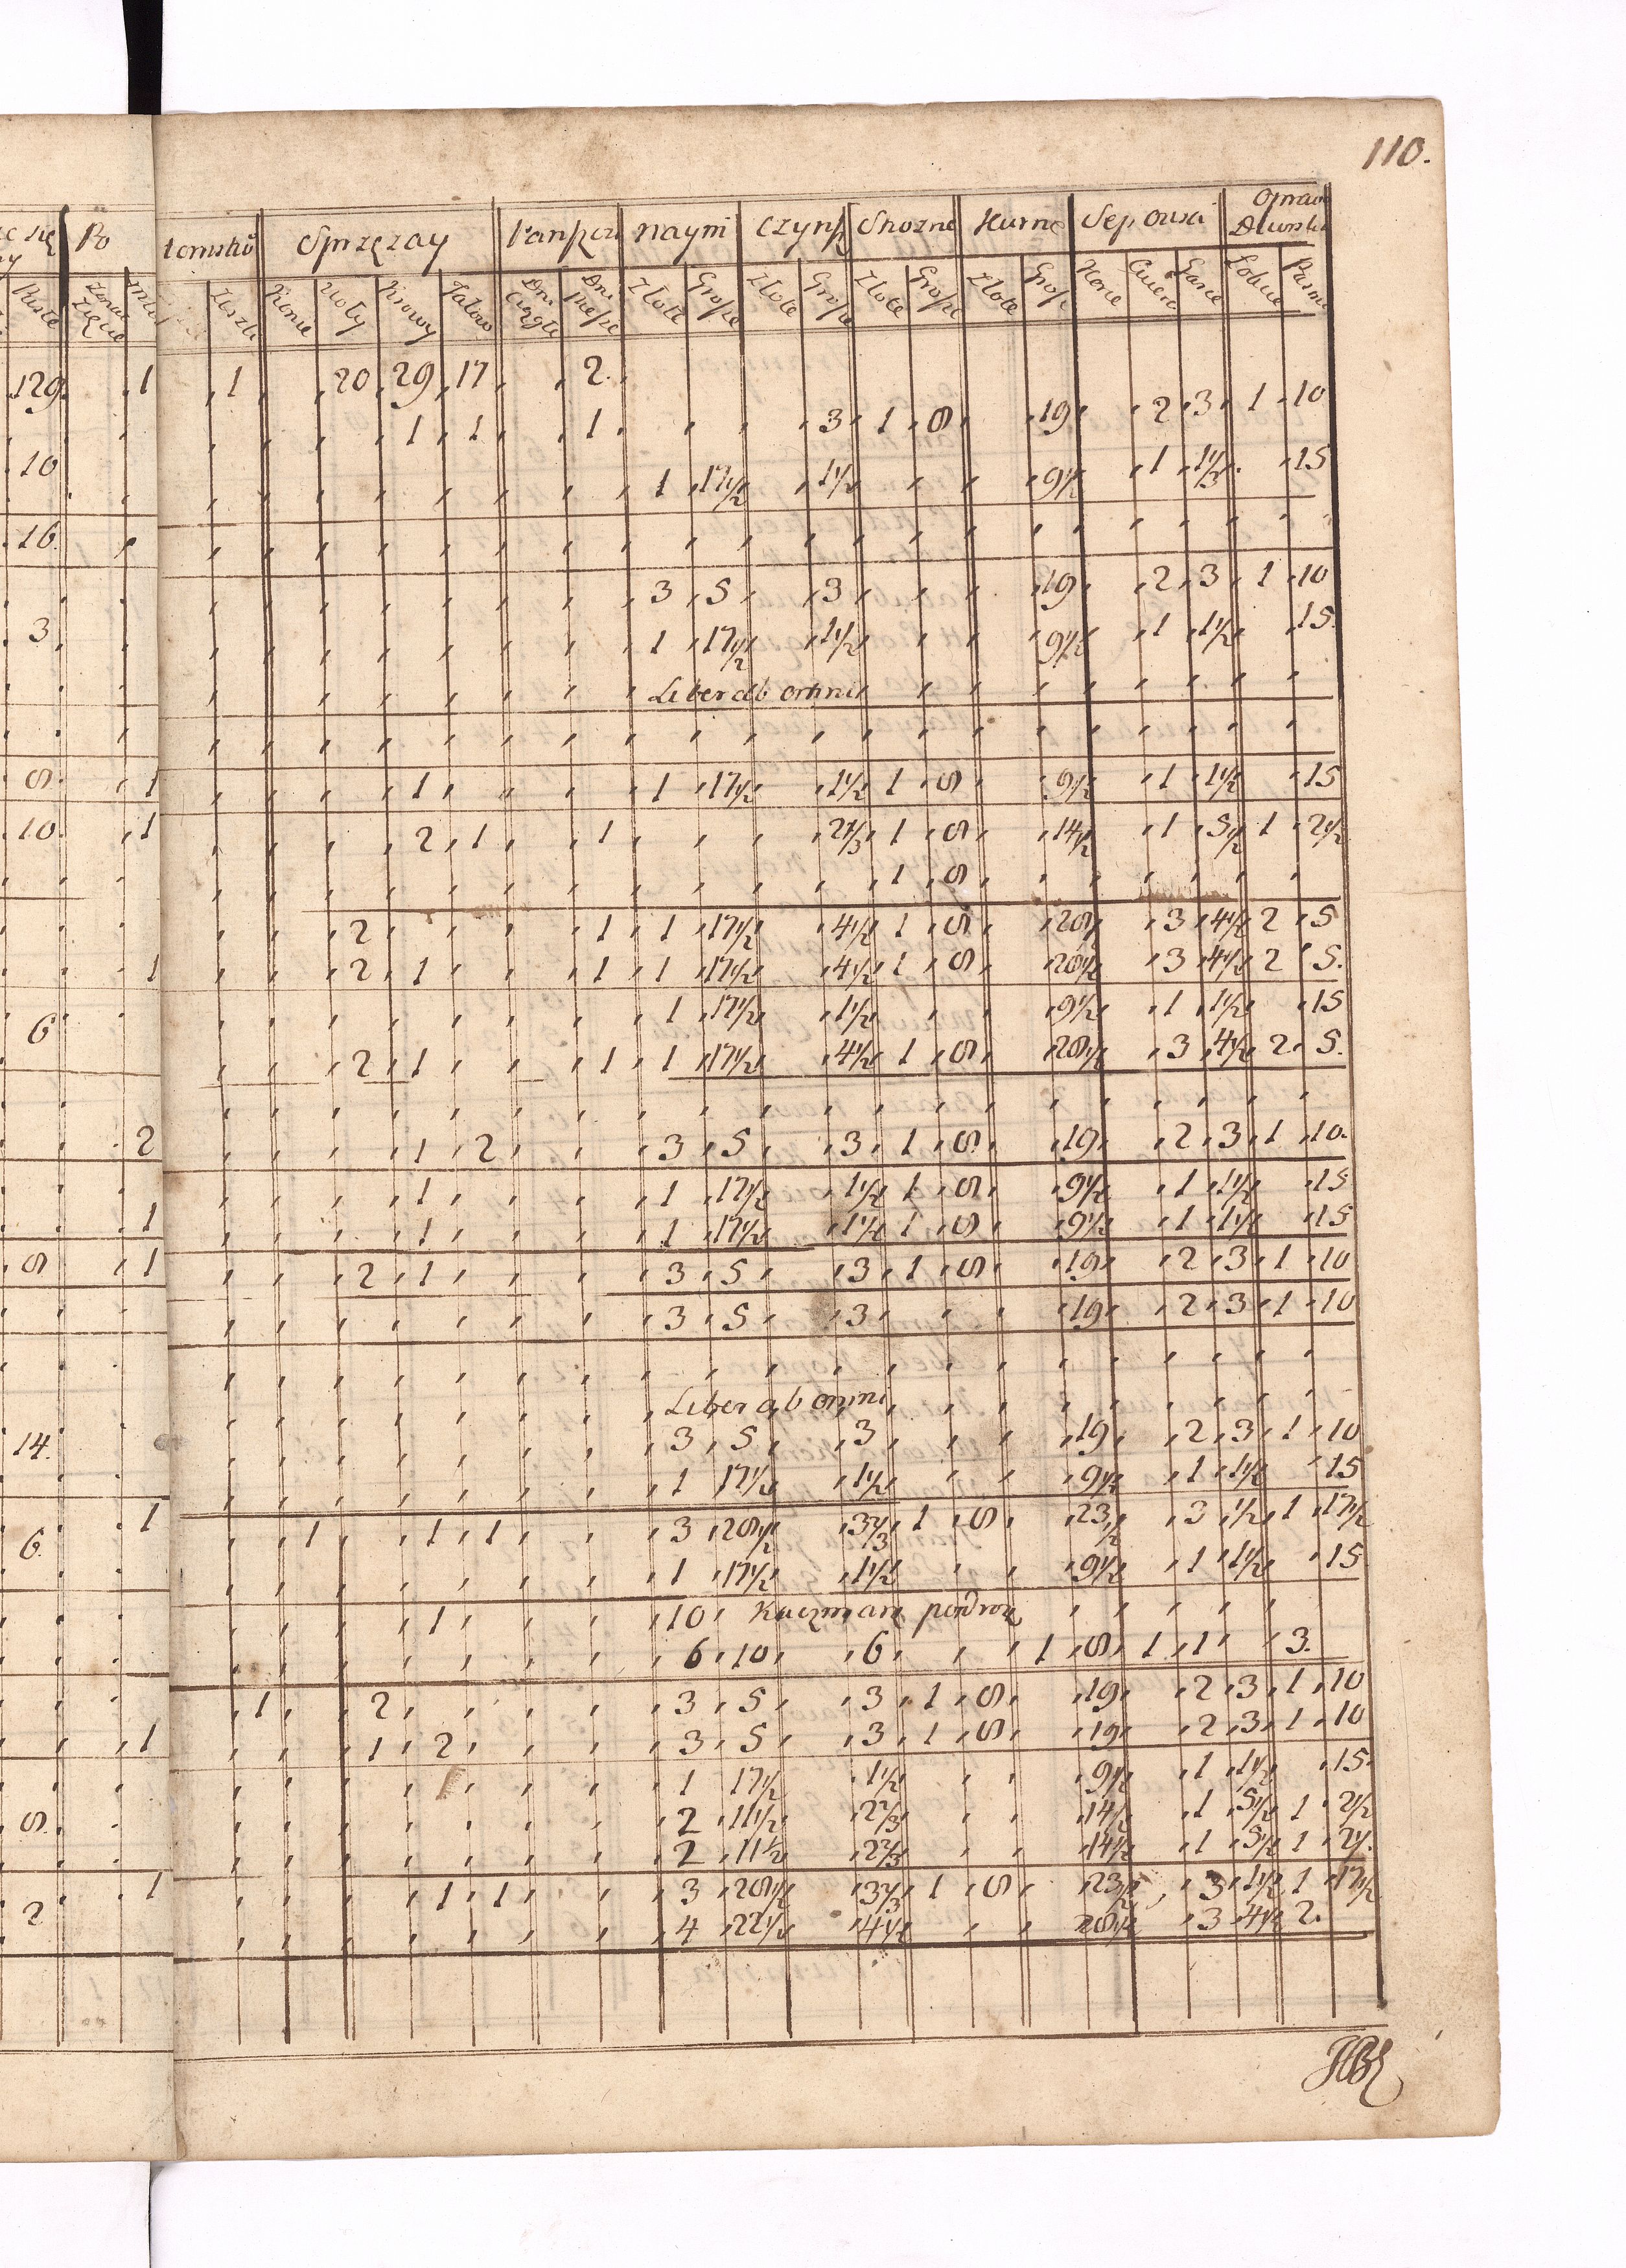 110.
Po
tomstwo Sprzęzay Panszcz naym Czynsz Strozne Kurne Sep owsa Opraw Dlurska
Puste Zięcio Zeszli Konie Woły Krowy Jałow Dni Ciągłe Dni Piesze Złote Grosze Złote Grosze Złote Grosze Złote Grosze Korce Cwierci Garce Łokcie Pasma
129. 1 1 20 29 17 2.
1 1 1 3 1 8 19 2 3 1 10
10 1 17½ 1½ 9½ 1 1⅓ 15
16.
3 5 3 19 2 3 1 10
3 1 17½ 1½ 9½ 1 1½ 15.
Liber ab omni
8 1 1 1 17½ 1½ 1 8 9½ 1 1½ 15
10. 1 2 1 1 2⅓ 1 8 14½ 1 5½ 1 2½
1 8
2 1 1 17½ 4½ 1 8 28½ 3 4½ 2 5
1 2 1 1 1 17½ 4½ 1 8 28½ 3 4½ 2 5.
6 1 17½ 1½ 9½ 1 1½ 15
2 1 1 1 17½ 4½ 1 8 28½ 3 4½ 2 5.
2 1 2 3 5 3 1 8 19 2 3 1 10.
1 1 17½ 1½ 1 8 9½ 1 1½ 15
1 1 1 17½ 1½ 1 8 9½ 1 1½ 15
8 1 2 1 3 5 3 1 8 19 2 3 1 10
3 5 3 19 2 3 1 10
Liber ab omni
14. 3 5 3 19 2 3 1 10
1 17½ 1½ 9½ 1 1½ 15
6. 1 1 1 1 3 28½ 3⅔ 1 8 23½ 3 ½ 1 17½
1 17½ 1½ 9½ 1 1½ 15
1 10 Kaczmarz
6 10 6 1 8 1 1 3.
1 2 3 5 3 1 8 19 2 3 1 10
1 1 2 3 5 3 1 8 19 2 3 1 10
1 17½ 1½ 9½ 1 1½ 15.
8. 2 11½ 2⅔ 14½ 1 5½ 1 2½
2 11½ 2⅔ 14½ 1 5½ 1 2½
2 1 1 1 3 28½ 3⅔ 1 8 23½ 3 1½ 1 17½
4 22½ 4½ 28½ 3 4½ 2.